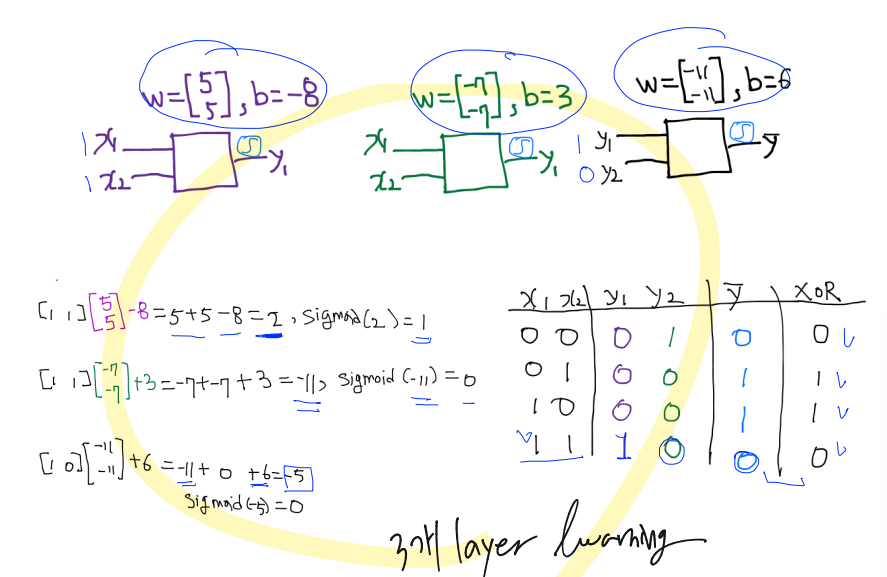 w=[5 5], b=-8
w=[-7 -7], b=3
w=[-11 -11], b=6
1 x1
1 x2
S y1
x1
x2
S y1
1 y1
0 y2
S ȳ
[1 1][5 5]-8=5+5-8=2, sigmoid(2)=1
[1 1][-7 -7]+3=-7+-7+3=-11, sigmoid(-11)=0
[1 0][-11 -11]+6=-11+0+6=-5
sigmoid(-5)=0
x1 x2 y1 y2 ȳ XOR
0 0 0 1 0 0
0 1 0 0 1 1
1 0 0 0 1 1
1 1 1 0 0 0
3개 layer learning